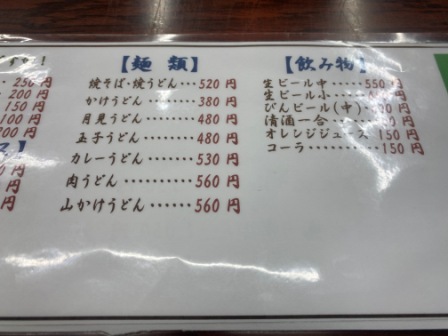 すか!
250 円
200 円
150 円
100 円
200 円
【麺 類】
焼そば・焼うどん…520 円
かけうどん………380 円
月見うどん………480 円
玉子うどん………480 円
カレーうどん……530 円
肉うどん…………560 円
山かけうどん……560 円
【飲み物】
生ビール中……550 円
生ビール小…
びんビール(中)
清酒一合
オレンジジュース 150 円
コーラ………150 円